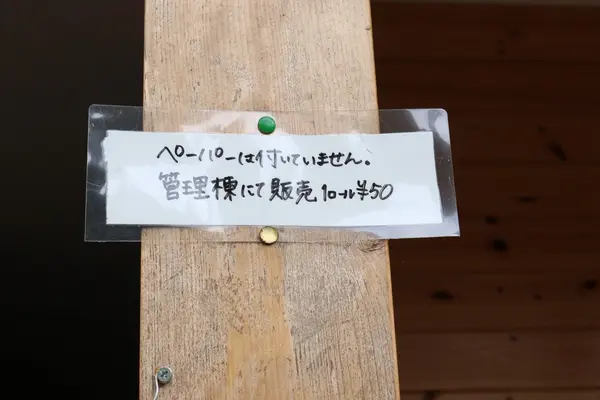 ペーパーは付いていません。
管理棟にて販売 1ロール¥50